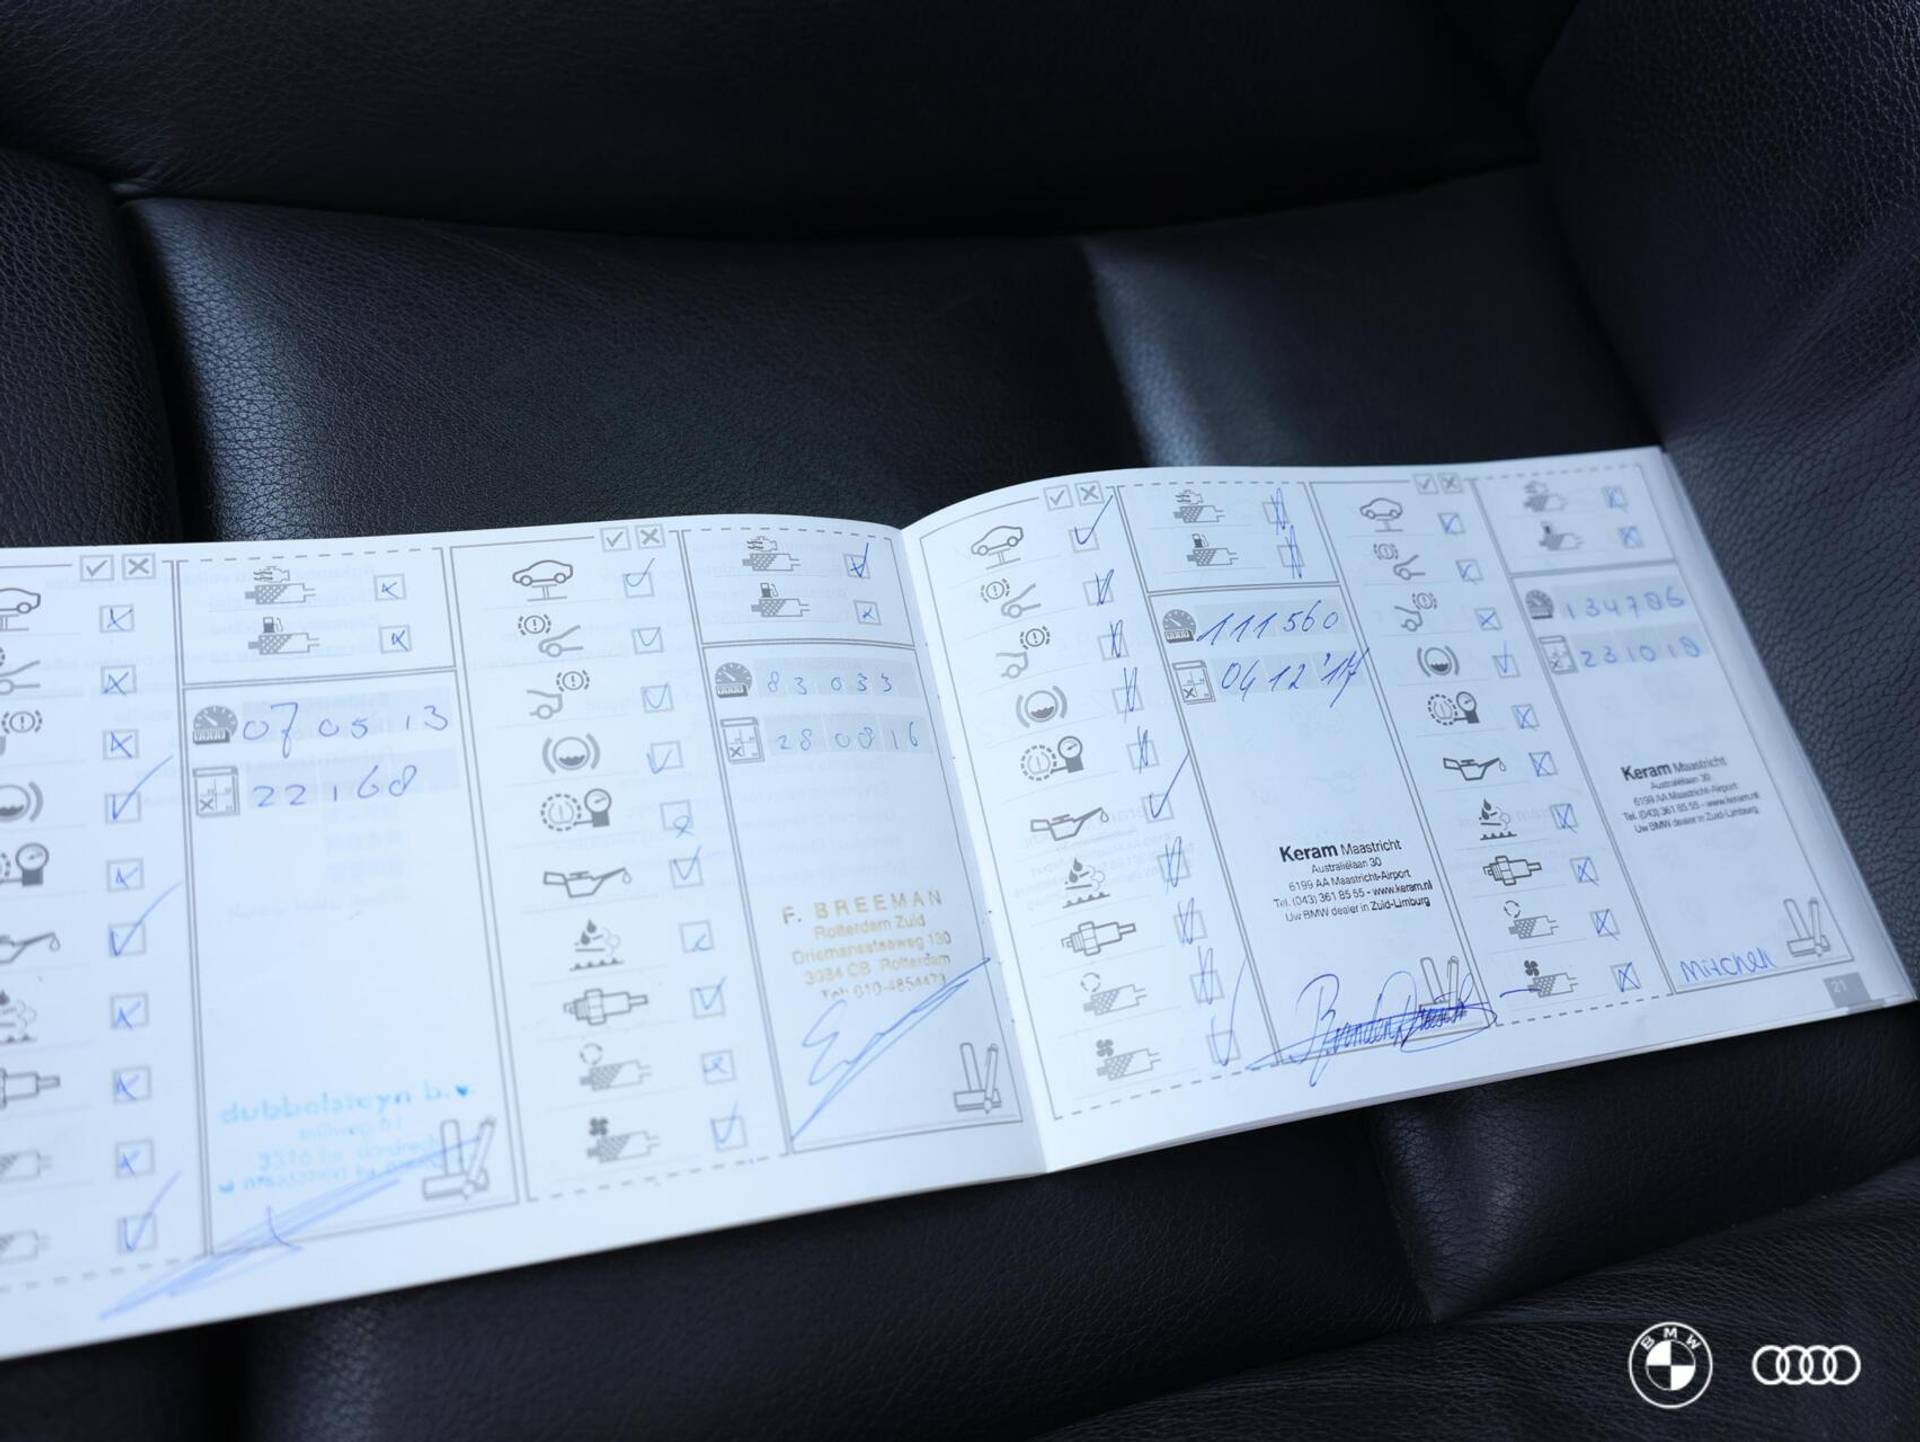 07 05 13
22168
dubbelsteyn b.v.
83033
28 08 16
F. BREEMAN
Rotterdam Zuid
Driemanssteeweg 130
3084 CB Rotterdam
Tel: 010-4854473
111560
04 12 '17
Keram Maastricht
Australiëlaan 30
6199 AA Maastricht-Airport
Tel. (043) 361 85 55 - www.keram.nl
Uw BMW dealer in Zuid-Limburg
134786
231018
Keram Maastricht
Australiëlaan 30
6199 AA Maastricht-Airport
Tel. (043) 361 85 55 - www.keram.nl
Uw BMW dealer in Zuid-Limburg
Mitchell
21
BMW